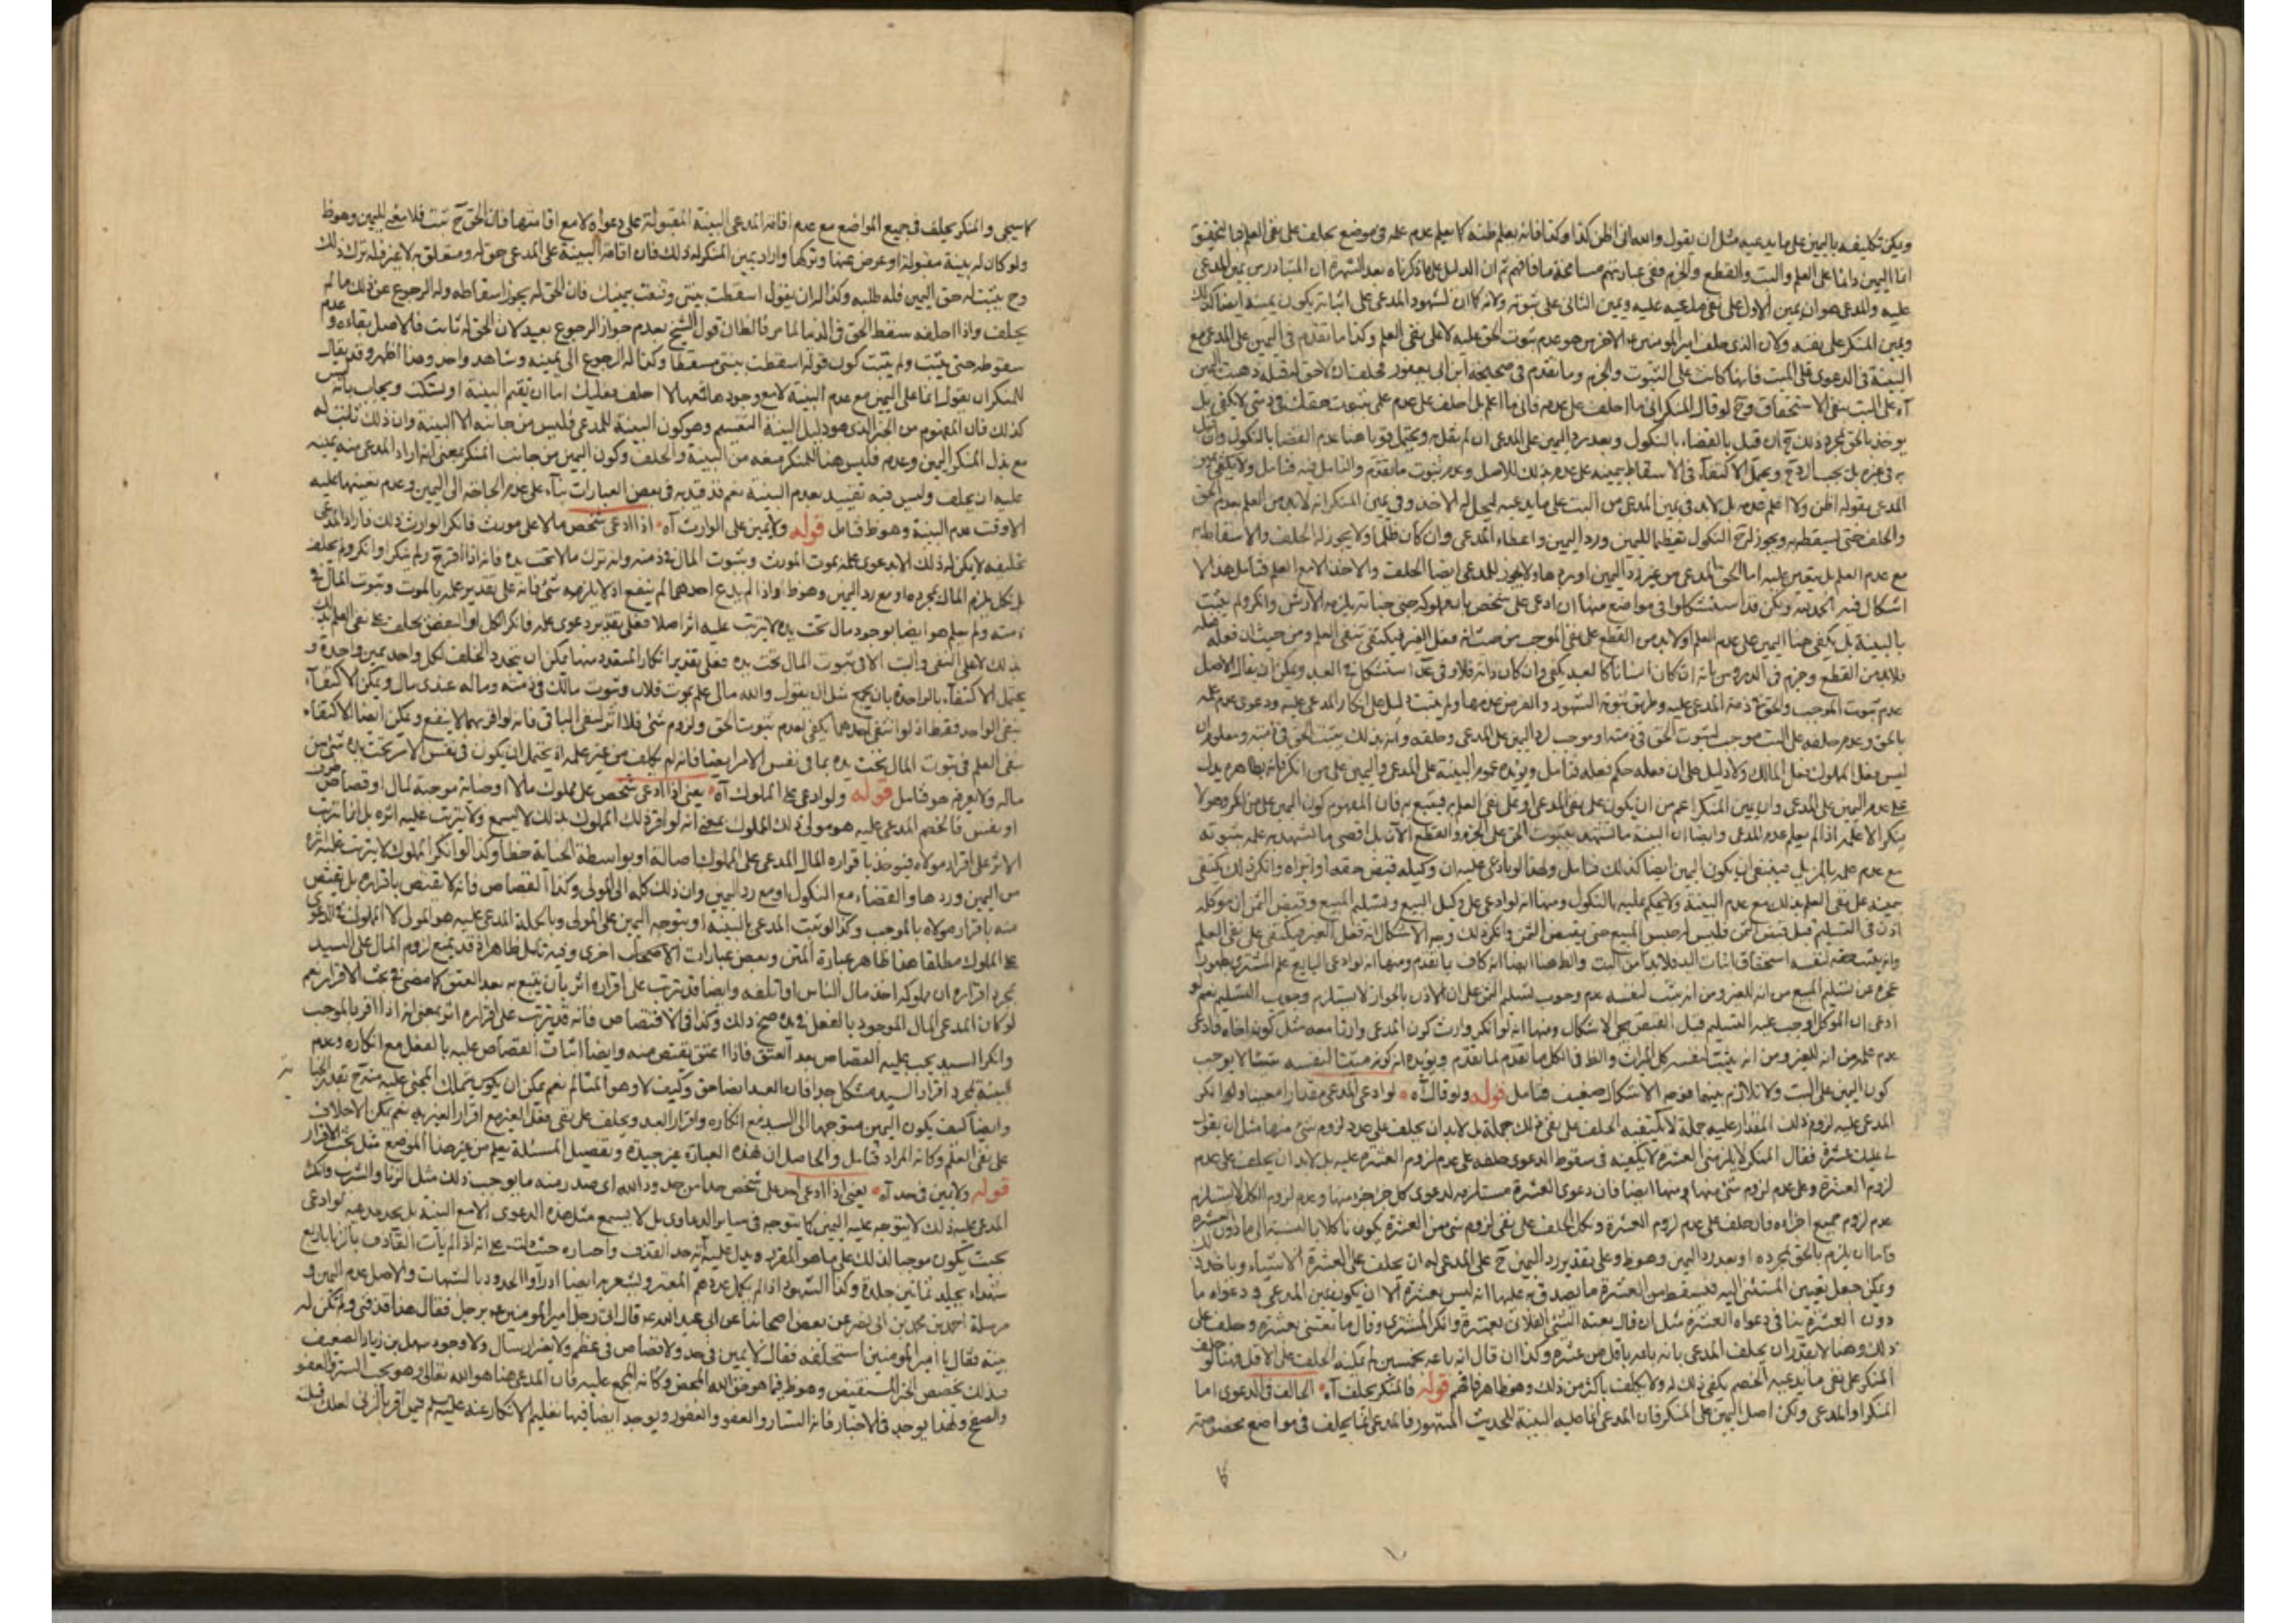 ويمكن تكليفه باليمين على ما يدعيه مثل ان يقول والله انى اظن كذا وكذا فانه يعلم ظنه كما يعلم عدم علمه فى موضع يحلف على نفى العلم فما يتحقق
انما اليمين دائما على العلم والبت والقطع والجزم ففى عبارتهم مسامحة ما فافهم ثم ان الدليل على ما ذكرناه بعد الشهرة ان المتبادر من يمين المدعى
عليه والمدعى هو ان يمين الاول على نفى ما ادعيه عليه ويمين الثانى على ثبوته ولانه كما ان شهود المدعى على اثباته يكون يمينه ايضا كذلك
ويمين المنكر على نفيه ولان الذى حلف امير المؤمنين ع الاخرس هو عدم ثبوت الحق عليه لا على نفى العلم وكذا ما تقدم فى اليمين على المدعى مع
البينة فى الدعوى على الميت فانها كانت على الثبوت والجزم وما تقدم فى صحيحة ابن ابى يعفور فحلف ان لا حق له قبله ذهبت اليمين
آه على البت بنفى الاستحقاق وح لو قال المنكر انى ما احلف على عدمه فانى ما اعلم بل احلف على عدم علمى بثبوت حقك فى ذمتى لا يكفى بل
يؤخذ بالحق بمجرد ذلك ح ان قيل بالقضاء بالنكول وبعد رد اليمين على المدعى ان لم يقل به ويحتمل قويا هنا عدم القضا بالنكول وان قيل
به فى غيره بل يجب الرد ح ويحتمل الاكتفاء فى الاسقاط بيمينه على عدم علمه بذلك للاصل وعدم ثبوت ما تقدم والتامل فيه فتامل ولا يكفى يمين
المدعى بقوله اظن ولا اعلم عدمه بل لابد فى يمين المدعى من البت على ما يدعيه ليحل له الاخذ وفى يمين المنكر انه لابد من العلم بعدم الحق
والحلف حتى يسقط به ويجوز له ح النكول تعظيما لليمين ورد اليمين واعطاء المدعى وان كان ظلما ولا يجوز له الحلف والاسقاط به
مع عدم العلم بل يتعين عليه اما الحق للمدعى من غير رد اليمين او برد ها ولا يجوز للمدعى ايضا الحلف والاخذ الا مع العلم فتامل هذا لا
اشكال فيه الحمد لله ولكن قد استشكلوا فى مواضع منها ان ادعى على شخص بان مملوكه جنى جناية يلزمه الارش وانكر ولم يثبت
بالبينة بل يكفى هنا اليمين على عدم العلم او لابد من القطع على نفى الموجب من حيث انه فعل الغير فيكتفى بنفى العلم ومن حيث ان فعله فعله
فلابد من القطع وجزم فى الدروس بانه ان كان انسانا كالعبد يكفى وان كان دابة فلا وفى عد استشكل فى العبد ويمكن ان يقال الاصل
عدم ثبوت الموجب والحق فى ذمة المدعى عليه وطريق ثبوته الشهود والفرض عدمها ولم يثبت دليل على انكار المدعى عليه ودعوى عدم علمه
بالحق وعدم حلفه على البت موجب لثبوت الحق فى ذمته او موجب لرد اليمين على المدعى وحلفه وانه بذلك يثبت الحق فى ذمته ومعلوم ان
ليس فعل المملوك فعل المالك ولا دليل على ان فعله حكم فعله فتامل ويؤيده عموم البينة على المدعى واليمين على من انكر فانه بظاهره يدل
على عدم اليمين على المدعى وان يمين المنكر اعم من ان يكون على نفى المدعى او على نفى العلم به فيتبع به فان المفهوم كون اليمين على من انكر وهو لا
ينكر الا علمه اذا لم يعلم عدم المدعى وايضا ان البينة ما تشهد بثبوت الحق على الجزم والقطع الآن بل اقصى ما تشهد به علمه بثبوته
مع عدم علمه بالمزيل فينبغى ان يكون اليمين ايضا كذلك فتامل ولهذا لو ادعى عليه ان وكيله قبض حقه او ابراه وانكر ذلك يكتفى
يمينه على نفى العلم بذلك مع عدم البينة ولا يحكم عليه بالنكول ومنها انه لو ادعى على وكيل البيع وتسليم المبيع وقبض الثمن ان موكله
اذن فى التسليم قبل قبض الثمن فليس له حبس المبيع حتى يقبض الثمن وانكر ذلك وجه الاشكال انه فعل الغير فيكتفى على نفى العلم
وانه يثبت حقه لنفسه استحقاق اثبات اليد فلابد من البت والظ هنا ايضا انه كاف لما تقدم ومنها انه لو ادعى البايع علم المشترى
عجزه عن تسليم المبيع من انه للغير ومن انه يثبت لنفسه عدم وجوب تسليم الثمن على ان الاذن بالجواز لا يستلزم وجوب التسليم نعم لو
ادعى ان الموكل اوجب عليه التسليم قبل القبض يجئ الاشكال ومنها انه لو انكر وارث كون المدعى وارثا معه مثل كونه اخاه فادعى
عدم علمه من انه للغير ومن انه يثبت لنفسه كل الميراث والظ فى الكل ما تقدم لما تقدم ويؤيده ان كونه مثبتا لنفسه شيئا لا يوجب
كون اليمين على البت ولا تلازم بينهما فوجه الاشكال ضعيف فتامل قوله ولو قال آه لو ادعى المدعى مقدارا معينا ولو انكر
المدعى عليه لزوم ذلك المقدار عليه جملة لا يكفيه الحلف على نفى ذلك جملة بل لابد ان يحلف على عدم لزوم شئ منها مثل ان يقول
لى عليك عشرة فقال المنكر لا يلزمنى العشرة لا يكفيه فى سقوط الدعوى حلفه على عدم لزوم العشرة عليه بل لابد ان يحلف على عدم
لزوم العشرة وعلى عدم لزوم شئ منها ايضا فان دعوى العشرة مستلزمه لدعوى كل جزء جزء منها وعدم لزوم الكل لا يستلزم
عدم لزوم جميع اجزاءه فان حلف على عدم لزوم العشرة ونكل الحلف على نفى لزوم شئ من العشرة يكون ناكلا بالنسبة الى ما دون العشرة
فاما ان يلزم بالحق بمجرده او بعد رد اليمين وهو ظ وعلى تقدير رد اليمين ح على المدعى له ان يحلف على العشرة الا شيئا وياخذ ذلك
ويمكن جعل تعيين المستثنى اليه فيسقط من العشرة ما يصدق به عليها انه ليس بعشرة الا ان يكون يمين المدعى و دعواه ما
دون العشرة ينافى دعواه العشرة مثل ان قال بعته الشئ الفلانى بعشرة وانكر المشترى وقال ما بعتنى بعشرة وحلف على
ذلك وهنا لا يقدر ان يحلف المدعى بانه باعه باقل من عشرة وكذا ان قال انه باعه بخمسين لم يمكنه الحلف على الاقل وهنا لو حلف
المنكر على نفى ما يدعيه الخصم يكفى ذلك له ولا يكلف باكثر من ذلك وهو ظاهر فافهم قوله فالمنكر يحلف آه الحالف فى الدعوى اما
المنكر او المدعى ولكن اصل اليمين على المنكر فان المدعى انما عليه البينة للحديث المشهور فالمدعى انما يحلف فى مواضع مخصوصة
كا
كما سيجئ والمنكر يحلف فى جميع المواضع مع عدم اقامة المدعى البينة المقبولة على دعواه ولا مع اقامتها فان الحق ح ثبت فلا معنى لليمين وهو ظ
ولو كان له بينة مقبولة او عرض عنها وتركها واراد يمين المنكر له ذلك فان اقامة البينة على المدعى حق له ومتعلق به لا غير فله ترك ذلك
وح يثبت له حق اليمين فله طلبه وكذا له ان يقول اسقطت بينتى وقنعت بيمينك فان الحق له يجوز اسقاطه وله الرجوع عن ذلك ما لم
يحلف واذا احلفه سقط الحق فى الدنيا لما مر فالظ ان قول الشيخ بعدم جواز الرجوع بعيد لان الحق له ثابت فالاصل بقاءه وعدم
سقوطه حتى يثبت ولم يثبت كون قوله اسقطت بينتى مسقطا وكذا له الرجوع الى يمينه وشاهد واحد وهذا اظهر وقد يقال
للمنكر ان يقول انما على اليمين مع عدم البينة لا مع وجودها فعها لا احلف فعليك اما ان تقيم البينة او يسكت ويجاب بانه ليس
كذلك فان المفهوم من الخبر الذى هو دليل البينة التقسيم وهو كون البينة للمدعى فليس من جانبه الا البينة وان ذلك ثابت له
مع بذل المنكر اليمين وعدمه فليس هنا للمنكر منعه من البينة والحلف وكون اليمين من جانب المنكر بمعنى انه اراد المدعى منه يمينه
عليه ان يحلف وليس فيه تقييد بعدم البينة نعم قد قيد به فى بعض العبارات بناء على عدم الحاجة الى اليمين وعدم تعينها عليه
الا وقت عدم البينة وهو ظ فتامل قوله ولا يمين على الوارث آه اذا ادعى شخص مالا على مورث فانكر الوارث ذلك فاراد المدعى
تحليفه لا يمكن له ذلك الا بدعوى علمه بموت المورث وبثبوت المال فى ذمته وانه ترك مالا تحت يده فانه اذا اقر ح ولم ينكر او انكر ولم يحلف
بل نكل يلزم المال بمجرده او مع رد اليمين وهو ظ واذا لم يدع احدهما لم ينفع اذ لا يلزمه شئ فانه على تقدير علمه بالموت وثبوت المال فى
ذمته ولم يعلم هو ايضا بوجود مال تحت يده لا يترتب عليه اثر اصلا فعلى تقدير دعوى علمه فانكر الكل او البعض يحلف على نفى العلم
بذلك لا على النفى والبت الا فى ثبوت المال تحت يده فعلى تقدير انكار المتعدد منها يمكن ان يتعدد الحلف لكل واحد يمين واحدة و
يحتمل الاكتفاء بالواحدة بان يجمع مثل ان يقول والله مالى علم بموت فلان وثبوت مالك فى ذمته وماله عندى مال ويمكن الاكتفاء
بنفى الواحد فقط اذ لو انتفى احدهما يكفى لعدم ثبوت الحق ولزوم شئ فلا اثر لنفى الباقى فانه لو اقر بهما لا ينفع ويمكن ايضا الاكتفاء
بنفى العلم فى ثبوت المال تحت يده بما فى نفس الامر ايضا فانه لم يكلف من غير علمه اذ يحتمل ان يكون فى نفس الامر تحت يده شئ من
ماله ولا يعرفه هو فتامل قوله ولو ادعى على المملوك آه يعنى اذا ادعى شخص على مملوك مالا او جناية موجبة لمال او قصاص طرف
او نفس فالخصم المدعى عليه هو مولى ذلك المملوك بمعنى انه لو اقر ذلك المملوك بذلك لا يسمع ولا يترتب عليه اثره بل انما يترتب
الاثر على اقرار مولاه فيؤخذ باقراره المال المدعى على المملوك اصالة او بواسطة الجناية خطأ وكذا لو انكر المملوك لا يترتب عليه اثره
من اليمين وردها والقضاء مع النكول او مع رد اليمين وان ذلك كله الى المولى وكذا القصاص فانه لا يقتص باقراره بل يقتص
منه باقرار مولاه بالموجب وكذا لو يثبت المدعى بالبينة او يتوجه اليمين على المولى وبالجملة المدعى عليه هو المولى لا المملوك فى الدعوى
على المملوك مطلقا هذا ظاهر عبارة المتن وبعض عبارات الاصحاب اخرى وفيه تامل ظاهر اذ قد يمنع لزوم المال على السيد
بمجرد اقراره ان مملوكه اخذ مال الناس او اتلفه وايضا قد ترتب على اقراره اثر بان يتبع به بعد العتق كما مضى فى بحث الاقرار نعم
لو كان المدعى المال الموجود بالفعل فى يده صح ذلك وكذا فى الاقتصاص فانه قد يترتب على اقراره اثر بمعنى انه اذا اقر بالموجب
وانكر السيد يجب عليه القصاص بعد العتق فاذا اعتق يقتص منه وايضا اثبات القصاص عليه بالفعل مع انكاره وعدم
البينة بمجرد اقرار السيد مشكل جدا فان العبد ايضا حق وكيف لا وهو المتالم نعم يمكن ان يكون يتملك المجنى عليه منه ح بقدر الجناية
وايضا كيف يكون اليمين متوجها الى السيد مع انكاره واقرار العبد ويحلف على نفى فعل الغير مع اقرار الغير به نعم يمكن الاحلاف
على نفى العلم وكانه المراد فتامل والحاصل ان هذه العبارة غير جيدة وتفصيل المسئلة يعلم من غير هذا الموضع مثل بحث الاقرار
قوله ولا يمين فى حد آه يعنى اذا ادعى احد على شخص حدا من حدود الله اى صدر منه ما يوجب ذلك مثل الزنا والشرب وانكر
المدعى عليه ذلك لا يتوجه عليه اليمين كما يتوجه فى سائر الدعاوى بل لا يسمع مثل هذه الدعوى الا مع البينة بل يحد مدعيه لو ادعى
بحيث يكون موجبا لذلك على ما هو المقرر ويدل عليه آية حد القذف واخباره حيث دلت على انه اذا لم يات القاذف بالزنا باربع
شهداء يجلد ثمانين جلدة وكذا الشهود اذا لم يكمل عددهم المعتبر ويشعر به ايضا ادرأوا الحدود بالشبهات والاصل عدم اليمين و
مرسلة احمد بن محمد بن ابى نصر عن بعض اصحابنا عن ابى عبد الله ع قال اتى رجل امير المؤمنين ع برجل فقال هذا قذفنى ولم تكن له
بينة فقال يا امير المؤمنين استحلفه فقال لا يمين فى حد ولا قصاص فى عظم ولا يضر ارسال ولا وجود سهل بن زياد الضعيف
فبذلك يخصص الخبر المستفيض وهو ظ فيما هو حق الله المحض وكانه المجمع عليه فان المدعى هنا هو الله تعالى وهو يحب الستر والعفو
والصفح ولهذا يوجد فى الاخبار فانه الستار والعفو والغفور ويوجد ايضا فيها تعليم الانكار عنه عليه السلم فيمن اقر بالزنى لعلك قبلت